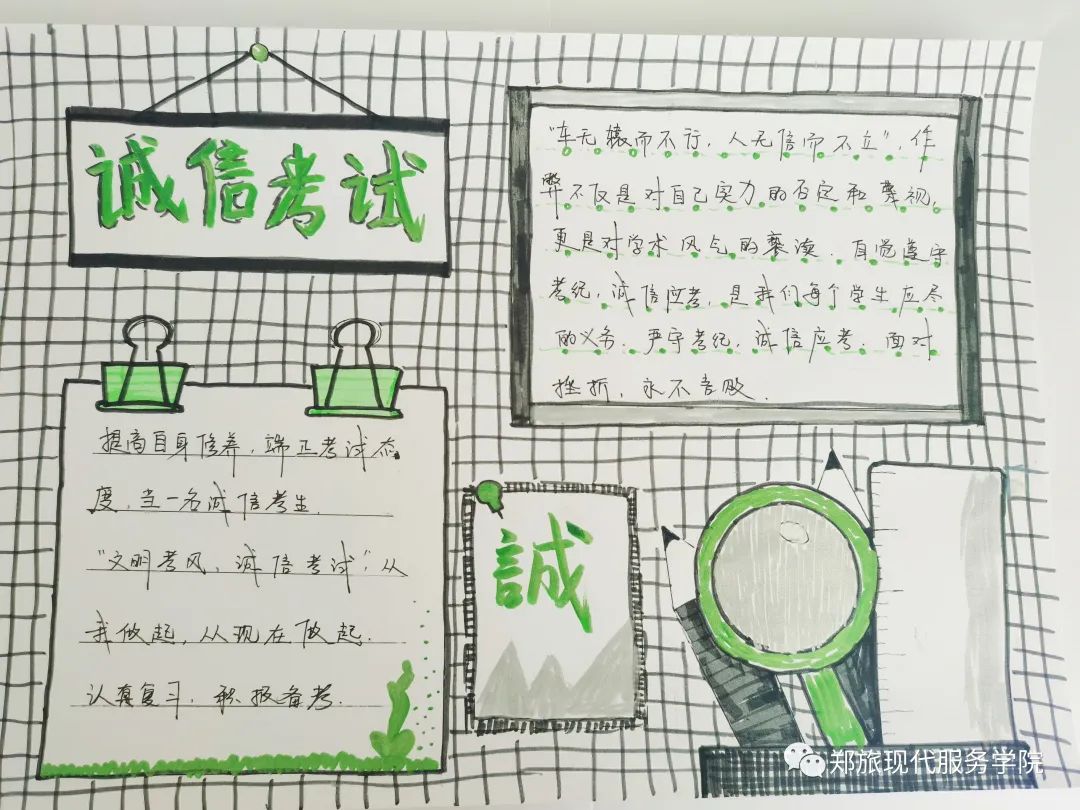 诚信考试
"车无辕而不行，人无信而不立"，作
弊不仅是对自己实力的否定和蔑视，
更是对学术风气的亵渎．自觉遵守
考纪，诚信应考，是我们每个学生应尽
的义务．严守考纪，诚信应考．面对
挫折，永不言败．
提高自身修养，端正考试态
度，当一名诚信考生．
"文明考风，诚信考试"，从
我做起，从现在做起．
认真复习，积极备考．
誠
郑旅现代服务学院